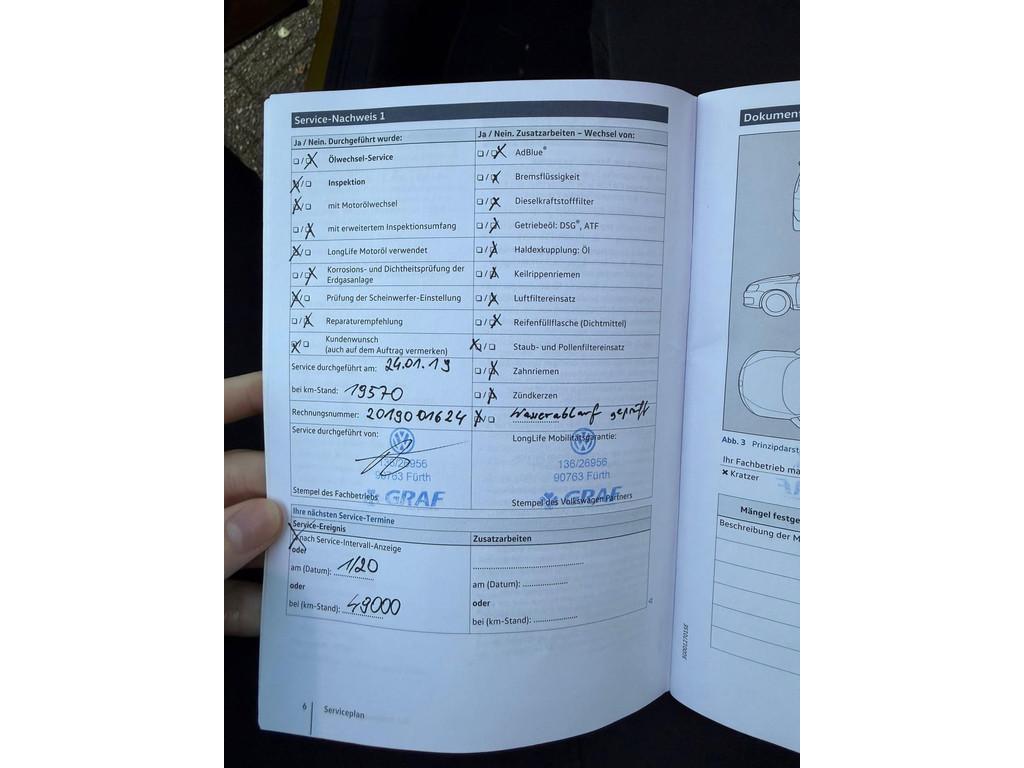 Service-Nachweis 1
Ja / Nein. Durchgeführt wurde:
Ölwechsel-Service
Inspektion
mit Motorölwechsel
mit erweitertem Inspektionsumfang
LongLife Motoröl verwendet
Korrosions- und Dichtheitsprüfung der
Erdgasanlage
Prüfung der Scheinwerfer-Einstellung
Reparaturempfehlung
Kundenwunsch
(auch auf dem Auftrag vermerken)
Service durchgeführt am: 24.01.19
bei km-Stand: 19570
Rechnungsnummer: 2019001624
Service durchgeführt von:
136/26956
90763 Fürth
GRAF
Stempel des Fachbetriebs
Ja / Nein. Zusatzarbeiten – Wechsel von:
AdBlue®
Bremsflüssigkeit
Dieselkraftstofffilter
Getriebeöl: DSG®, ATF
Haldexkupplung: Öl
Keilrippenriemen
Luftfiltereinsatz
Reifenfüllflasche (Dichtmittel)
Staub- und Pollenfiltereinsatz
Zahnriemen
Zündkerzen
Wasserablauf geprüft
LongLife Mobilitätsgarantie:
136/26956
90763 Fürth
GRAF
Stempel des Volkswagen Partners
Ihre nächsten Service-Termine
Service-Ereignis
nach Service-Intervall-Anzeige
oder
am (Datum): 1/20
oder
bei (km-Stand): 49000
Zusatzarbeiten
am (Datum):
oder
bei (km-Stand):
6 Serviceplan
Dokument
Abb. 3 Prinzipdarst
Ihr Fachbetrieb ma
Kratzer
Mängel festge
Beschreibung der M